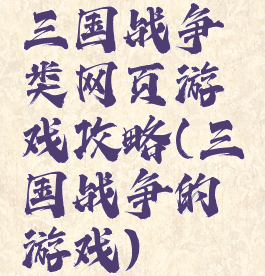 三国战争
类网页游
戏攻略(三
国战争的
游戏)